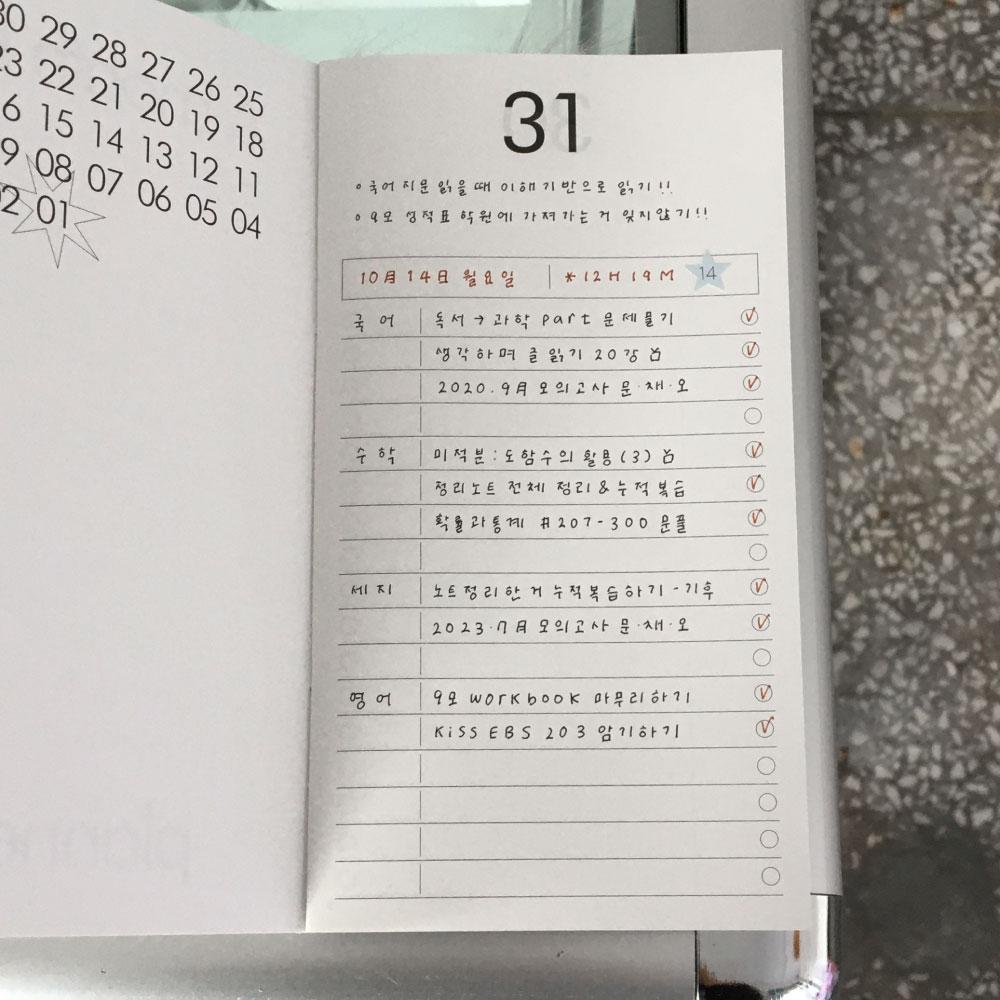 30 29 28 27 26 25
23 22 21 20 19 18
16 15 14 13 12 11
09 08 07 06 05 04
02 01
31
o국어 지문 읽을 때 이해 기반으로 읽기!!
o9모 성적표 학원에 가져가는 거 잊지않기!!
10月 14日 월요일 *12H 19M 14
국어 독서→과학 part 문제풀기
생각하며 글 읽기 20강
2020.9月 모의고사 문·채·오
수학 미적분:도함수의 활용(3)
정리노트 전체 정리&누적복습
확률과통계 #207-300 문풀
세지 노트정리한거 누적복습하기 -기후
2023.7月 모의고사 문·채·오
영어 9모 workbook 마무리하기
KiSS EBS 203 암기하기